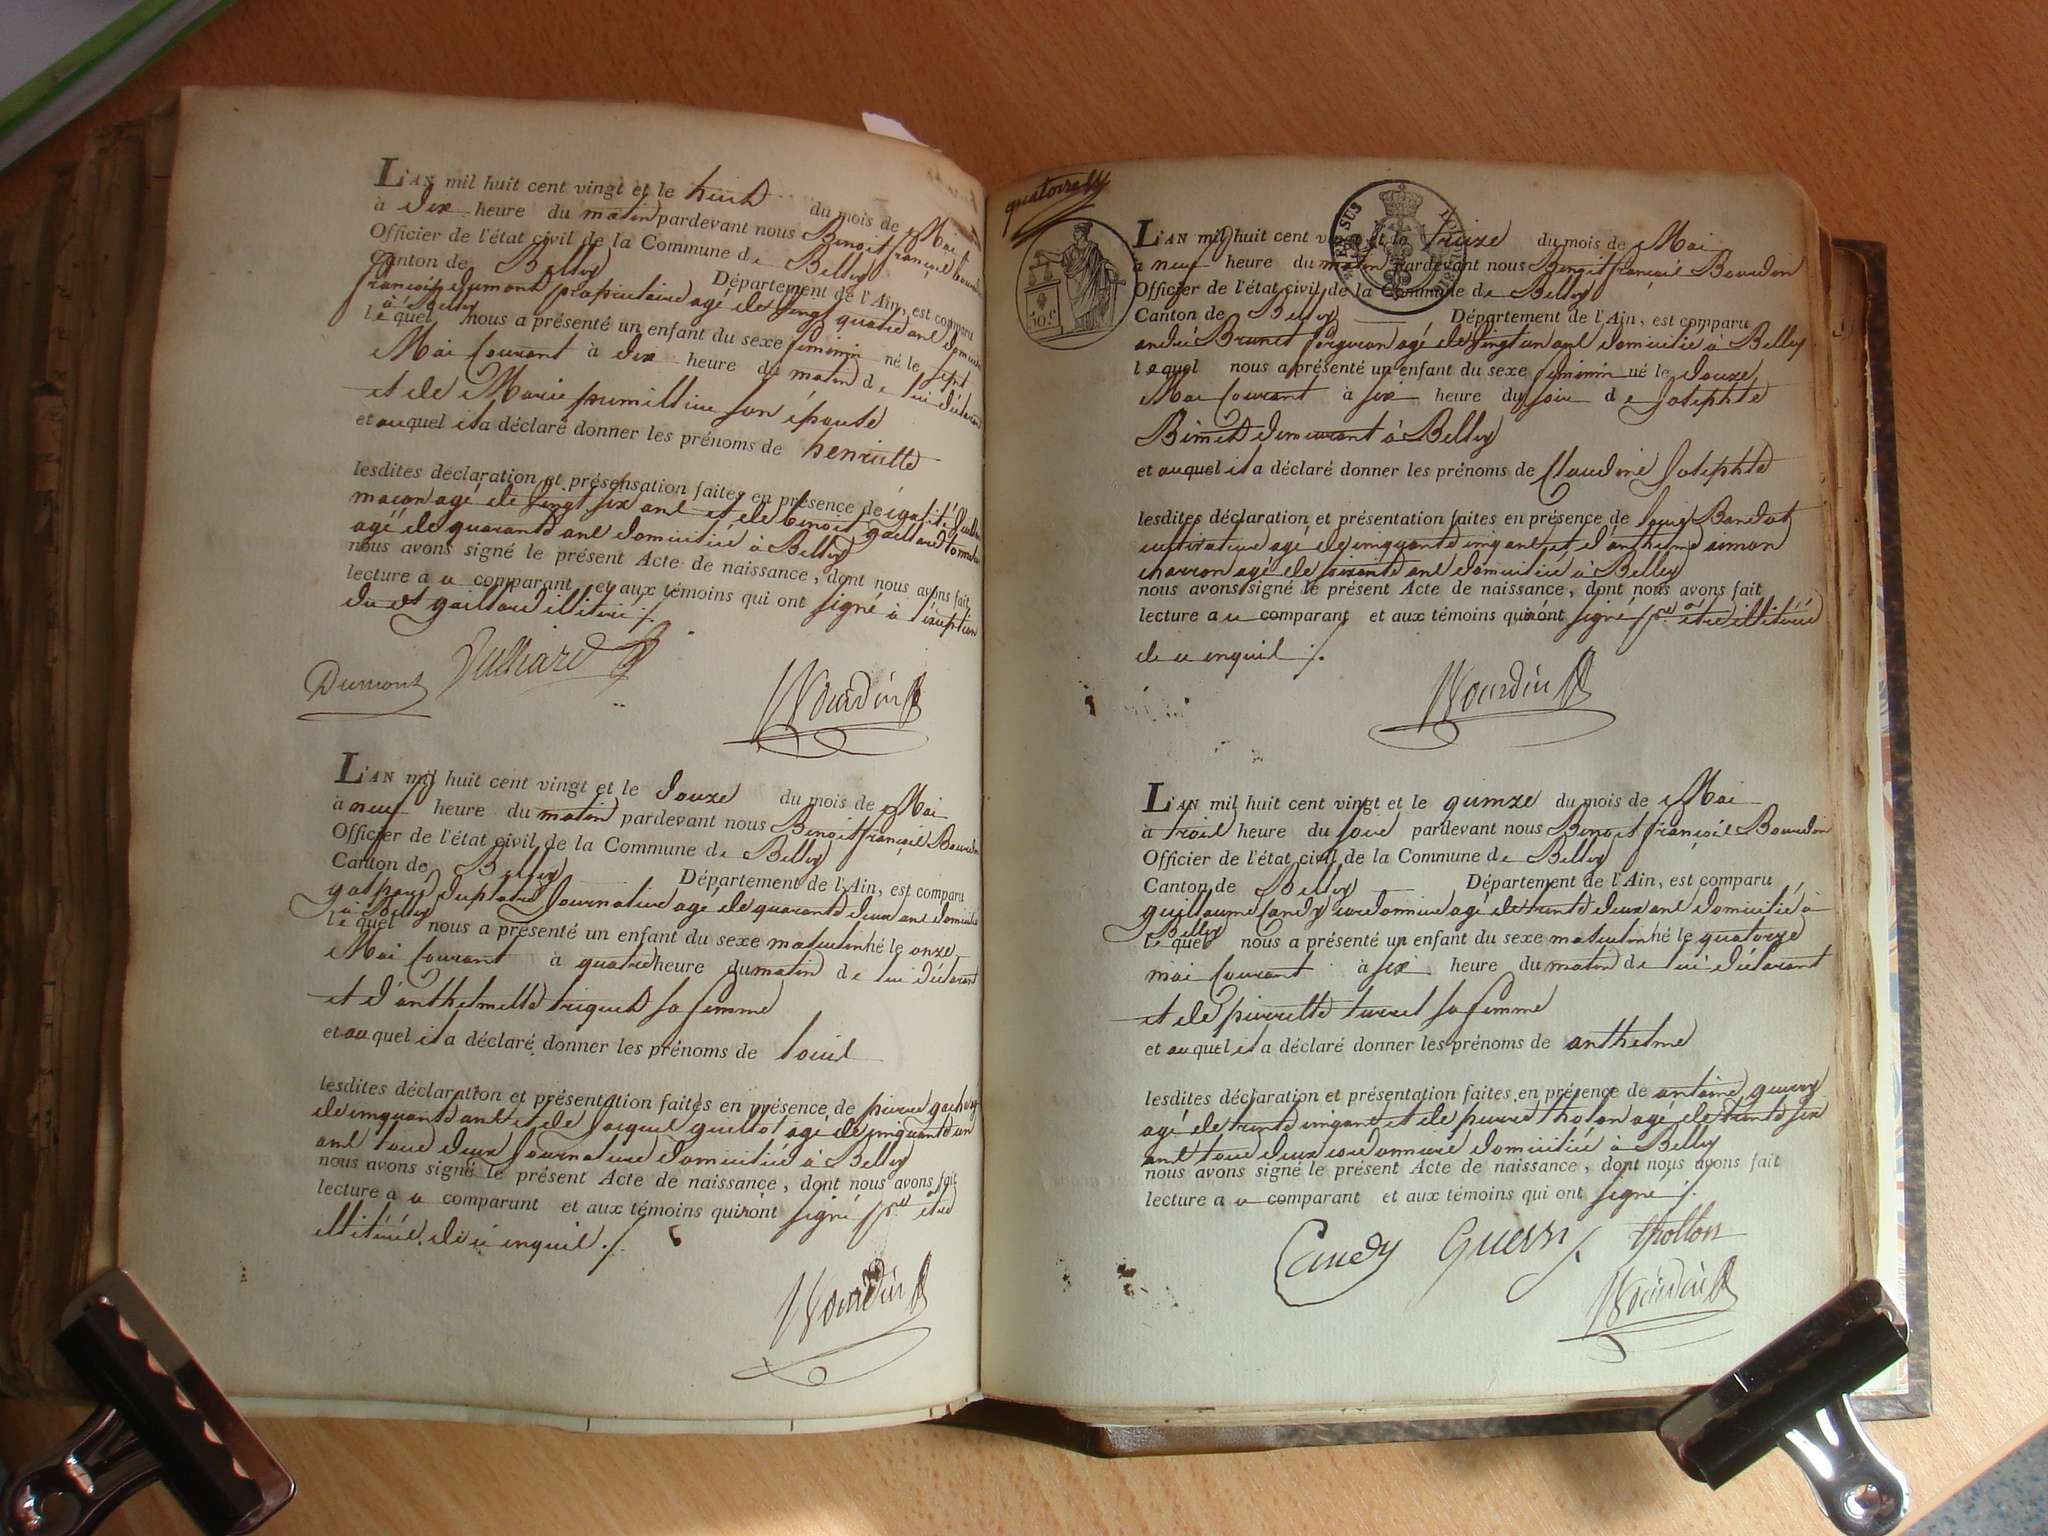 L'AN mil huit cent vingt et le huit du mois de Mai
à dix heure du matin pardevant nous Benoit françois bourdin
Officier de l'état civil de la Commune de Belley
Canton de Belley Département de l'Ain, est comparu
françois dumont propriétaire agé de vingt quatre ans domicilié
à Belley
lequel nous a présenté un enfant du sexe feminin né le sept
Mai Courant à dix heure du matin de lui déclarant
et de Marie son épouse
et auquel il a déclaré donner les prénoms de henriette
lesdites déclaration et présensation faites en présence de
maçon agé de vingt six ans et de benoit gaillard
agé de quarante ans domicilié à Belley
nous avons signé le présent Acte de naissance, dont nous avons fait
lecture a u comparant et aux témoins qui ont signé à l'exception
du dt gaillard illitéré ./.
Dumont Bourdin
L'AN mil huit cent vingt et le douze du mois de Mai
à neuf heure du matin pardevant nous Benoit françois Bourdin
Officier de l'état civil de la Commune de Belley
Canton de Belley Département de l'Ain, est comparu
gaspard duplatre Journalier agé de quarante deux ans domicilié
à Belley
lequel nous a présenté un enfant du sexe masculin né le onze
Mai Courant à quatre heure du matin de lui déclarant
et d'anthelmette triquet sa femme
et auquel il a déclaré donner les prénoms de louis
lesdites déclaration et présentation faites en présence de pierre
de cinquante ans et de agé de cinquante un
ans tous deux Journaliers domiciliés à Belley
nous avons signé le présent Acte de naissance, dont nous avons fait
lecture a u comparant et aux témoins qui n'ont signé pr être
illitérés de ce enquis ./.
Bourdin
L'AN mil huit cent vingt et le treize du mois de Mai
à neuf heure du matin pardevant nous Benoit françois Bourdin
Officier de l'état civil de la Commune de Belley
Canton de Belley Département de l'Ain, est comparu
andré Brunet forgeron agé de vingt un ans domicilié à Belley
lequel nous a présenté un enfant du sexe feminin né le douze
Mai Courant à six heure du soir de Josephte
Binet demeurant à Belley
et auquel il a déclaré donner les prénoms de Claudine Josephte
lesdites déclaration et présentation faites en présence de louis
cultivateur agé de cinquante cinq ans et d'anthelme simon
charron agé de soixante ans domiciliés à Belley
nous avons signé le présent Acte de naissance, dont nous avons fait
lecture a u comparant et aux témoins qui n'ont signé pr être illitérés
de ce enquis ./.
Bourdin
L'AN mil huit cent vingt et le quinze du mois de Mai
à trois heure du soir pardevant nous Benoit françois Bourdin
Officier de l'état civil de la Commune de Belley
Canton de Belley Département de l'Ain, est comparu
guillaume Candy cordonnier agé de trente deux ans domicilié à
Belley
lequel nous a présenté un enfant du sexe masculin né le quatorze
mai Courant à six heure du matin de lui déclarant
et de pierrette turrel sa femme
et auquel il a déclaré donner les prénoms de anthelme
lesdites déclaration et présentation faites en présence de antoine guerry
agé de trente cinq ans et de pierre tholon agé de trente six
ans tous deux cordonniers domiciliés à Belley
nous avons signé le présent Acte de naissance, dont nous avons fait
lecture a u comparant et aux témoins qui ont signé ./.
Candy Guerry thollon
Bourdin